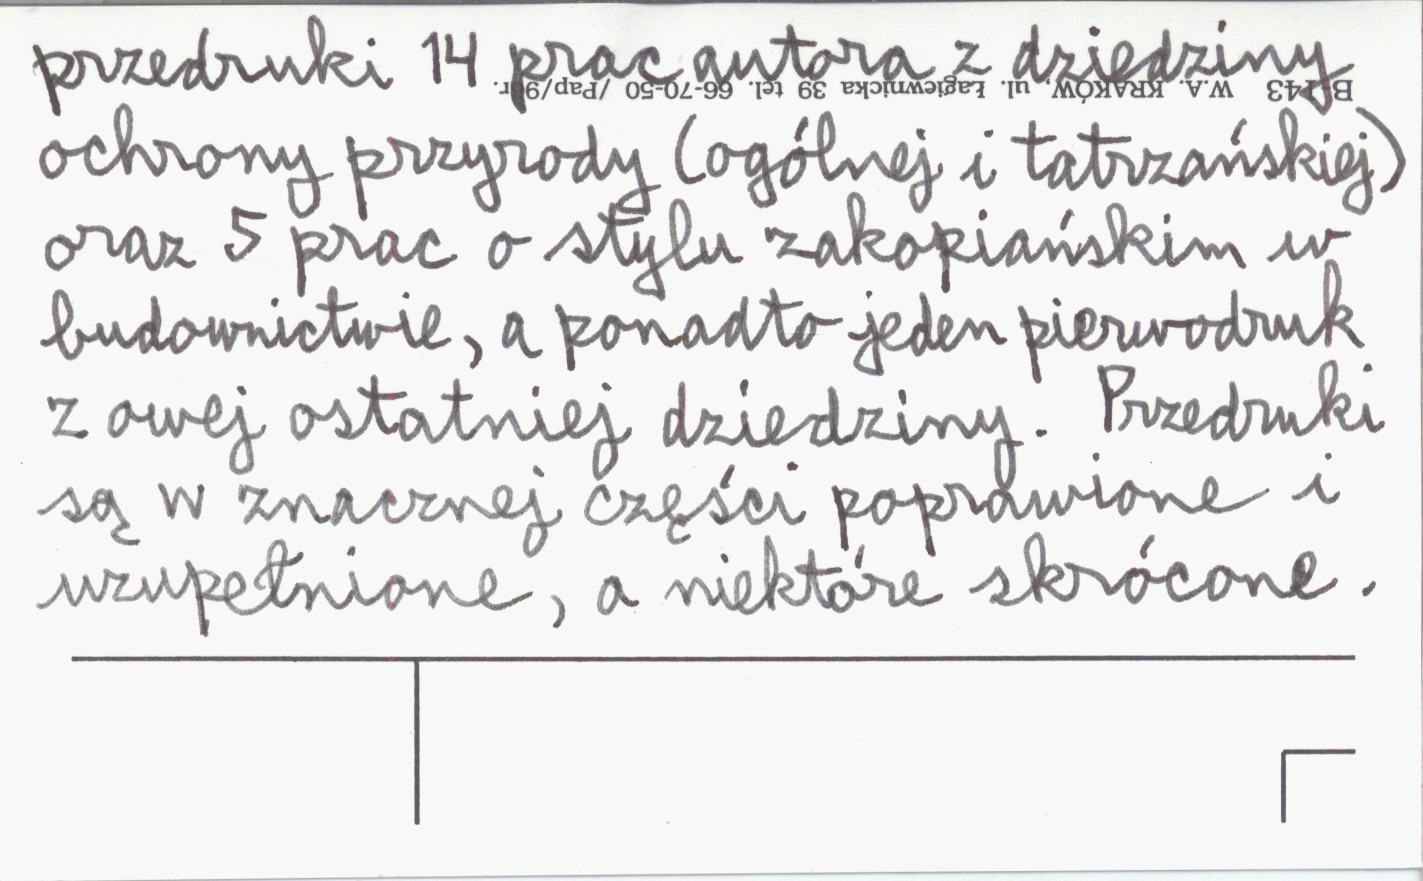 przedruki 14 prac autora z dziedziny
B-143 W.A. KRAKÓW, ul. Łagiewnicka 39 tel. 66-70-50 /Pap/90r.
ochrony przyrody (ogólnej i tatrzańskiej)
oraz 5 prac o stylu zakopiańskim w
budownictwie, a ponadto jeden pierwodruk
z owej ostatniej dziedziny. Przedruki
są w znacznej części poprawione i
uzupełnione, a niektóre skrócone.